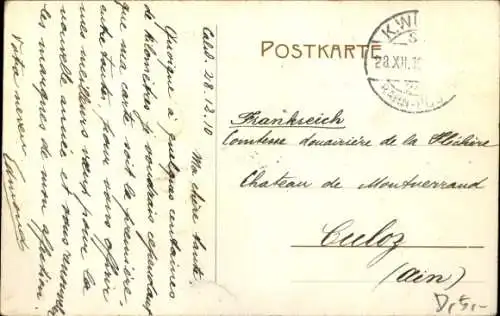 POSTKARTE
K. WÜ
28.XII.10
BAHN-POST
Frankreich
Comtesse Douairière de la Fléchère
Chateau de Montverrand
Culoz
(Ain)
Calw. 28.12.10 Ma chère tante.
Quoique à quelques centaines
de kilomètres je voudrais cependant
que ma carte soit la première,
entre toutes, pour vous offrir
mes meilleurs vœux pour la
nouvelle année et vous renouveler
les marques de mon affection.
Votre neveu